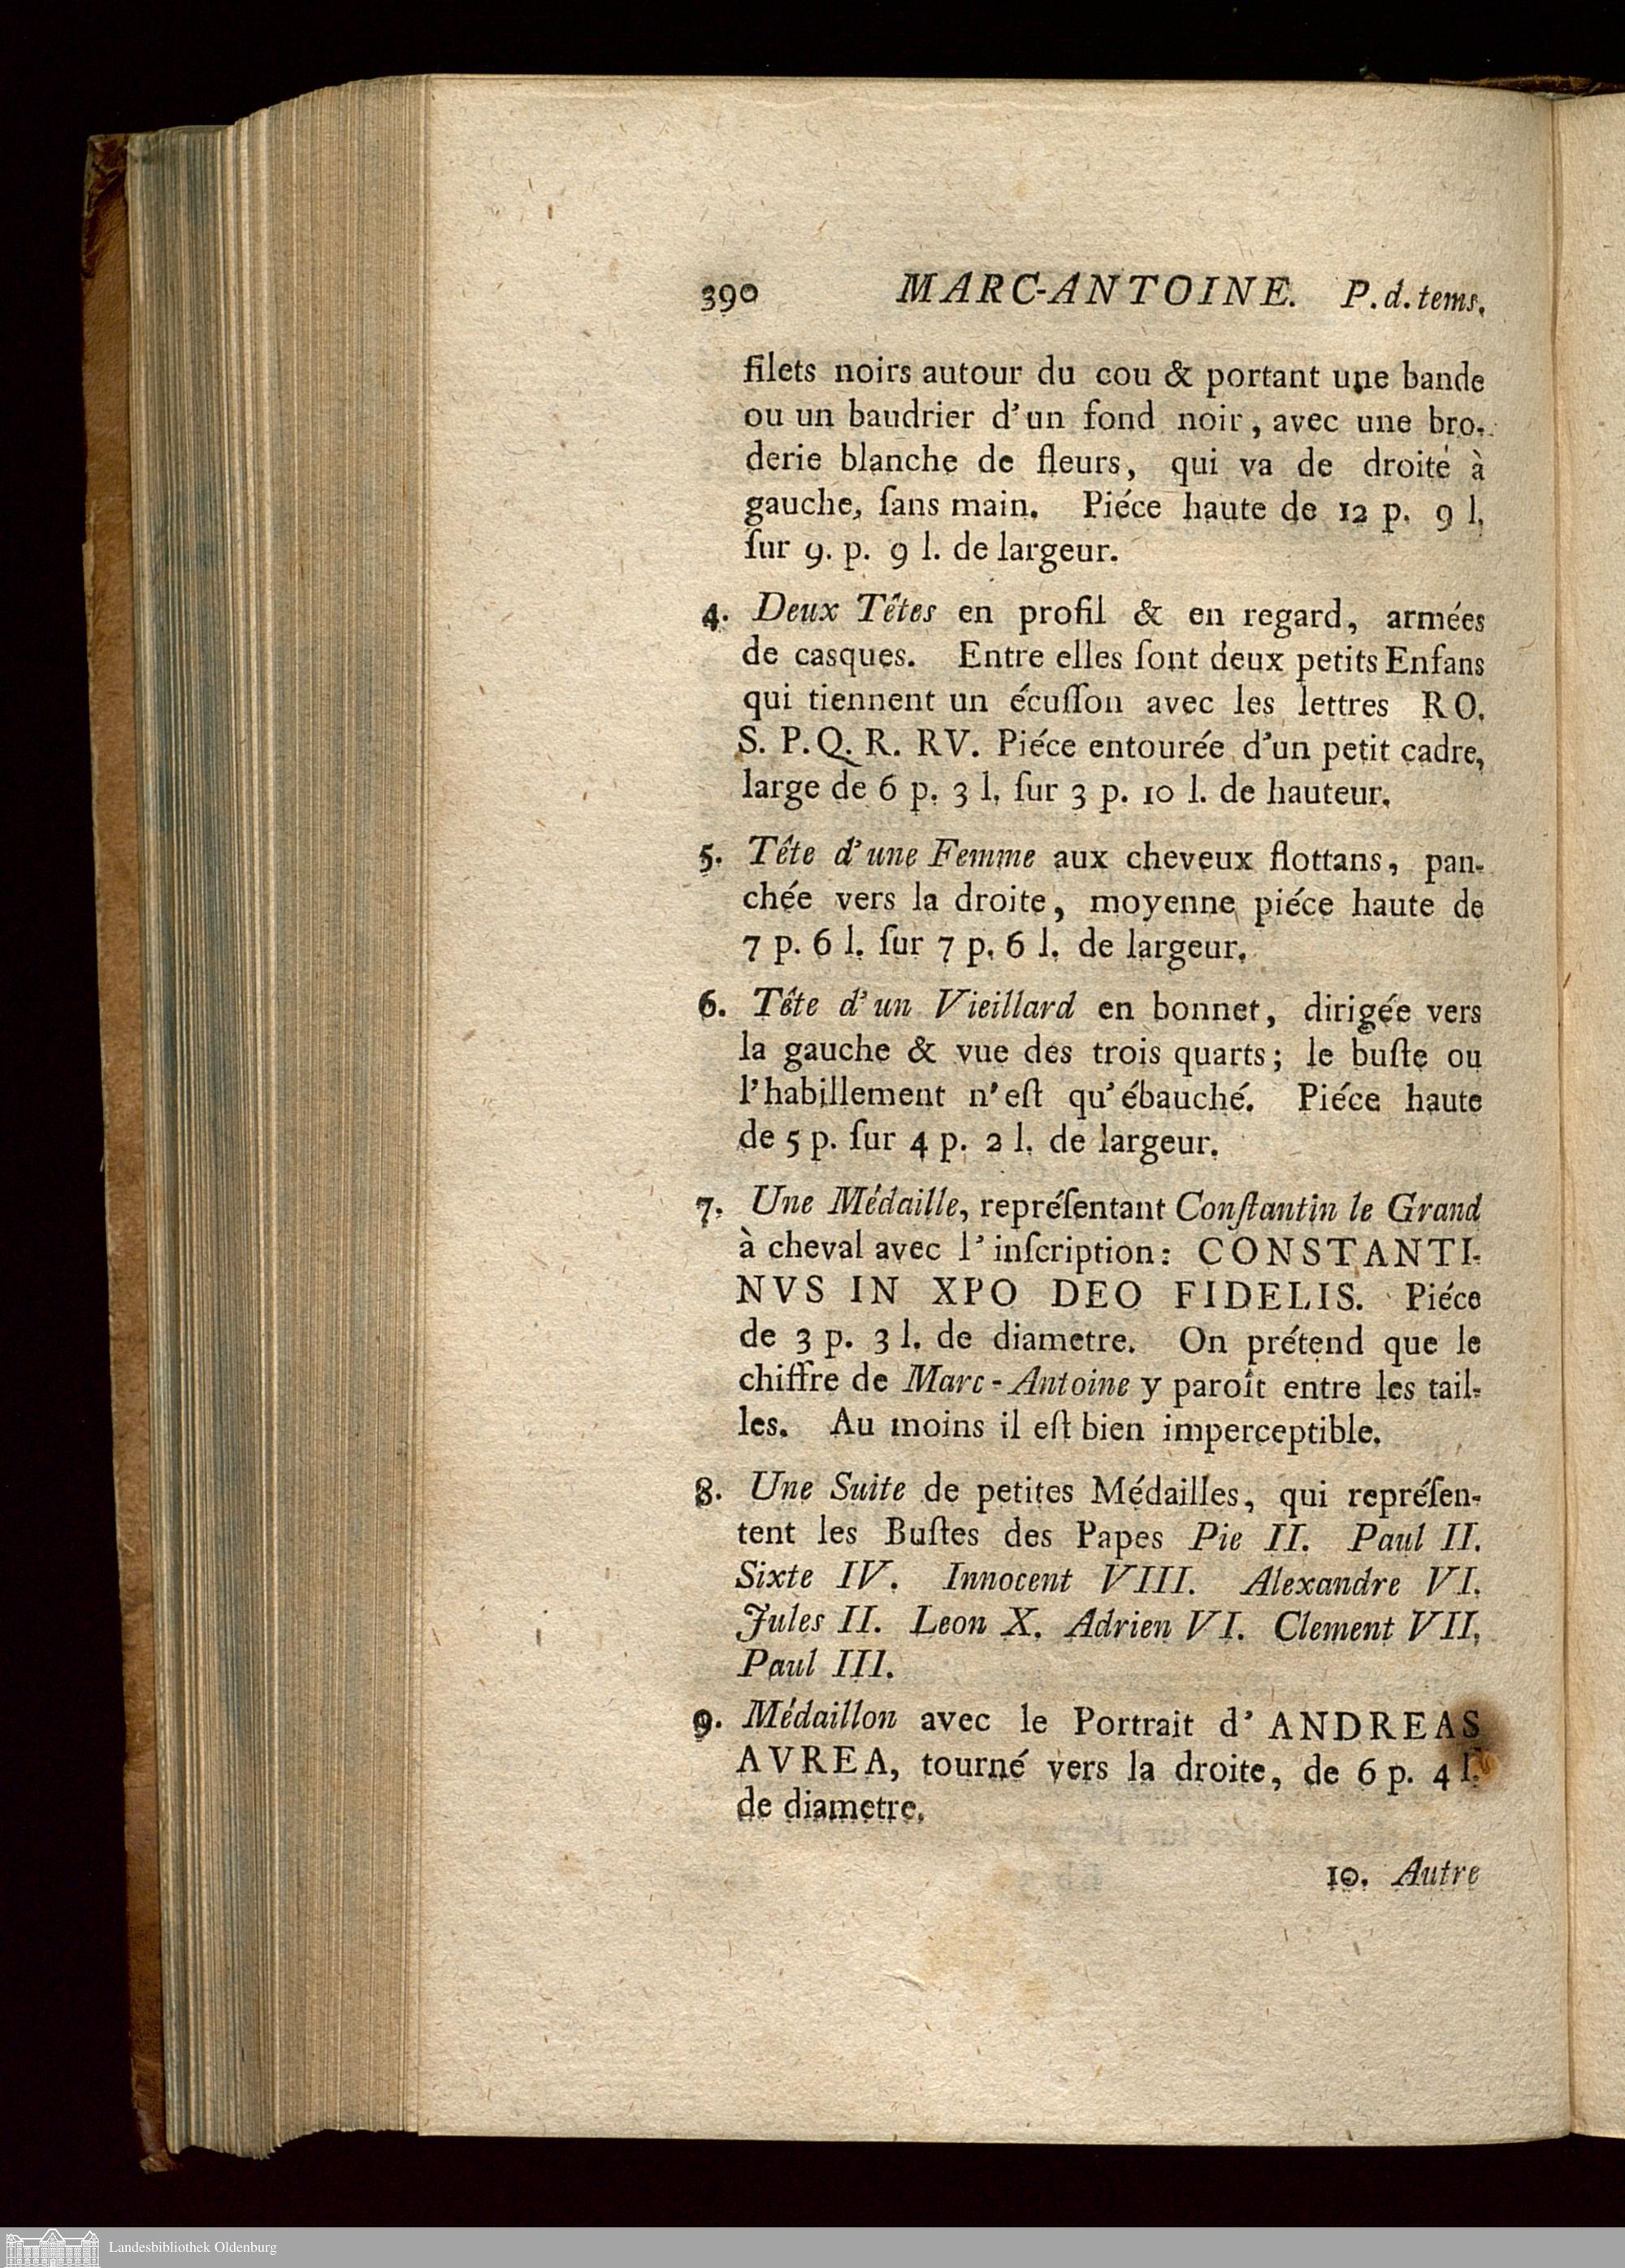 390 MARC-ANTOINE. P. d. tems.
filets noirs autour du cou & portant une bande
ou un baudrier d'un fond noir, avec une bro-
derie blanche de fleurs, qui va de droite à
gauche, ſans main. Piéce haute de 12 p. 9 l.
ſur 9. p. 9 l. de largeur.
4. Deux Têtes en profil & en regard, armées
de casques. Entre elles ſont deux petits Enfans
qui tiennent un écuſſon avec les lettres RO.
S. P. Q. R. RV. Piéce entourée d'un petit cadre,
large de 6 p. 3 l. ſur 3 p. 10 l. de hauteur.
5. Tête d'une Femme aux cheveux flottans, pan-
chée vers la droite, moyenne piéce haute de
7 p. 6 l. ſur 7 p. 6 l. de largeur.
6. Tête d'un Vieillard en bonnet, dirigée vers
la gauche & vue des trois quarts; le buſte ou
l'habillement n'eſt qu'ébauché. Piéce haute
de 5 p. ſur 4 p. 2 l. de largeur.
7. Une Médaille, repréſentant Conſtantin le Grand
à cheval avec l'inſcription: CONSTANTI-
NVS IN XPO DEO FIDELIS. Piéce
de 3 p. 3 l. de diametre. On prétend que le
chiffre de Marc-Antoine y paroît entre les tail-
les. Au moins il eſt bien imperceptible.
8. Une Suite de petites Médailles, qui repréſen-
tent les Buſtes des Papes Pie II. Paul II.
Sixte IV. Innocent VIII. Alexandre VI.
Jules II. Leon X. Adrien VI. Clement VII.
Paul III.
9. Médaillon avec le Portrait d'ANDREAS
AVREA, tourné vers la droite, de 6 p. 4 l.
de diametre.
10. Autre
Landesbibliothek Oldenburg